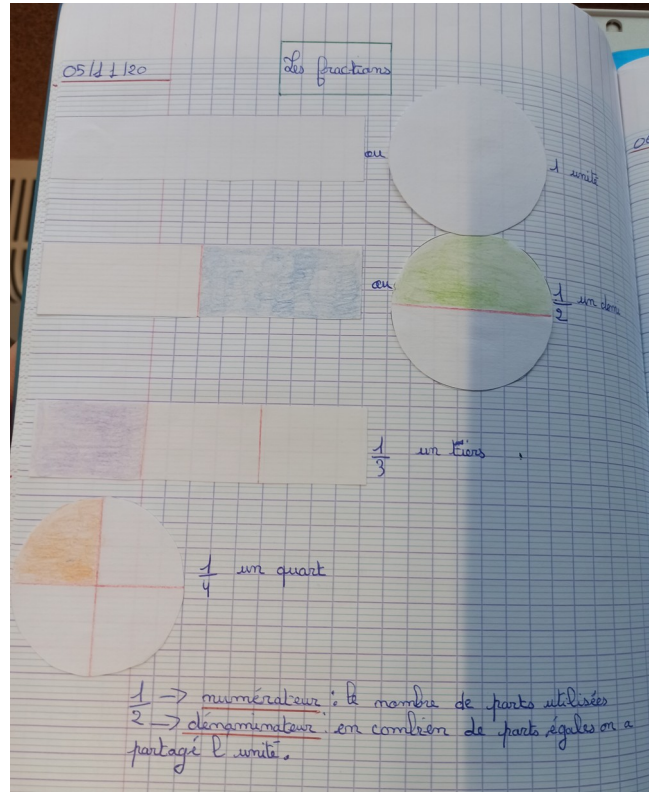 05/11/20
Les fractions
ou
1 unité
ou
1/2 un demi
1/3 un tiers
1/4 un quart
1/2 -> numérateur : le nombre de parts utilisées
-> dénominateur : en combien de parts égales on a
partagé l'unité.